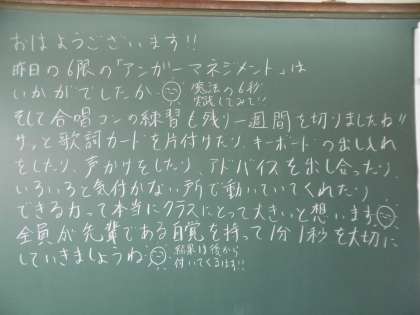 おはようございます!!
昨日の6限の「アンガーマネジメント」は
いかがでしたか 魔法の6秒
実践してみて!!
そして合唱コンの練習も残り一週間を切りましたね!!
サッと歌詞カードを片付けたり、キーボードの出し入れ
をしたり、声かけをしたり、アドバイスを出し合ったり、
いろいろと気付かない所で動いていてくれたり
できる力って本当にクラスにとって大きいと想います
全員が先輩である自覚を持って1分1秒を大切に
していきましょうね 結果は後から
付いてくるはず!!